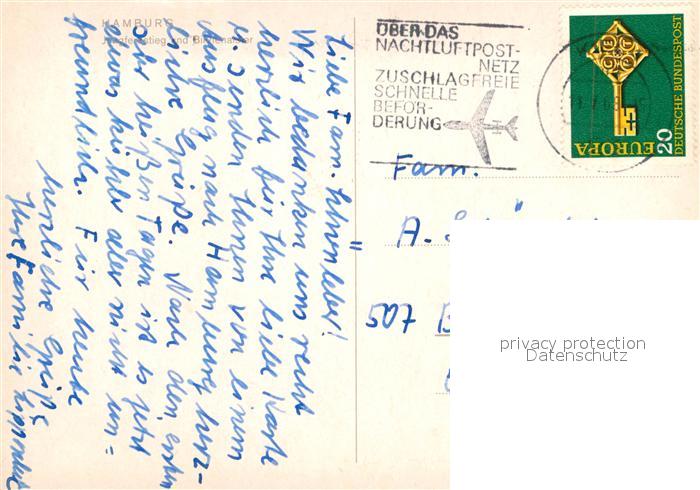 HAMBURG
Jungfernstieg und Binnenalster
Liebe Fam.
Wir bedanken uns recht
herzlich für Ihre liebe Karte
u. senden Ihnen von einem
Ausflug nach Hamburg herz-
liche Grüße. Nach den ersten
sehr heißen Tagen ist es jetzt
etwas kühler aber nicht un-
freundlich. Für heute
herzliche Grüße
Ihre Familie
ÜBER DAS
NACHTLUFTPOST-
NETZ
ZUSCHLAGFREIE
SCHNELLE
BEFÖR-
DERUNG
EUROPA
CEPT
20
DEUTSCHE BUNDESPOST
Fam.
A.
507
privacy protection
Datenschutz